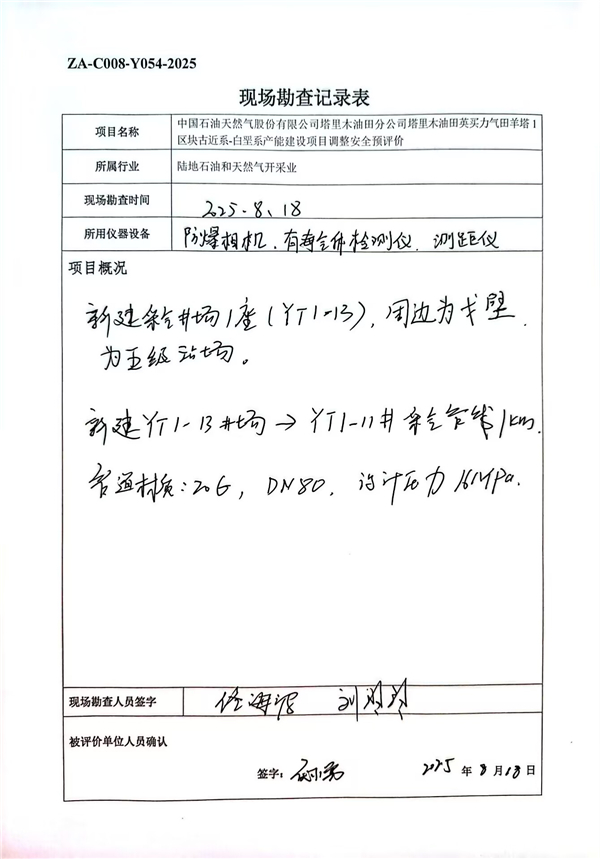 ZA-C008-Y054-2025
现场勘查记录表
项目名称
中国石油天然气股份有限公司塔里木油田分公司塔里木油田英买力气田羊塔1
区块古近系-白垩系产能建设项目调整安全预评价
所属行业
陆地石油和天然气开采业
现场勘查时间
2025.8.18
所用仪器设备
防爆相机、有毒气体检测仪、测距仪
项目概况
新建采气井场1座(YT1-13),周边为戈壁
为五级站场。
新建YT1-13井场→YT1-11井采气管线1km.
管道材质:20G,DN80,设计压力16MPa.
现场勘查人员签字
被评价单位人员确认
签字:
2025年8月18日